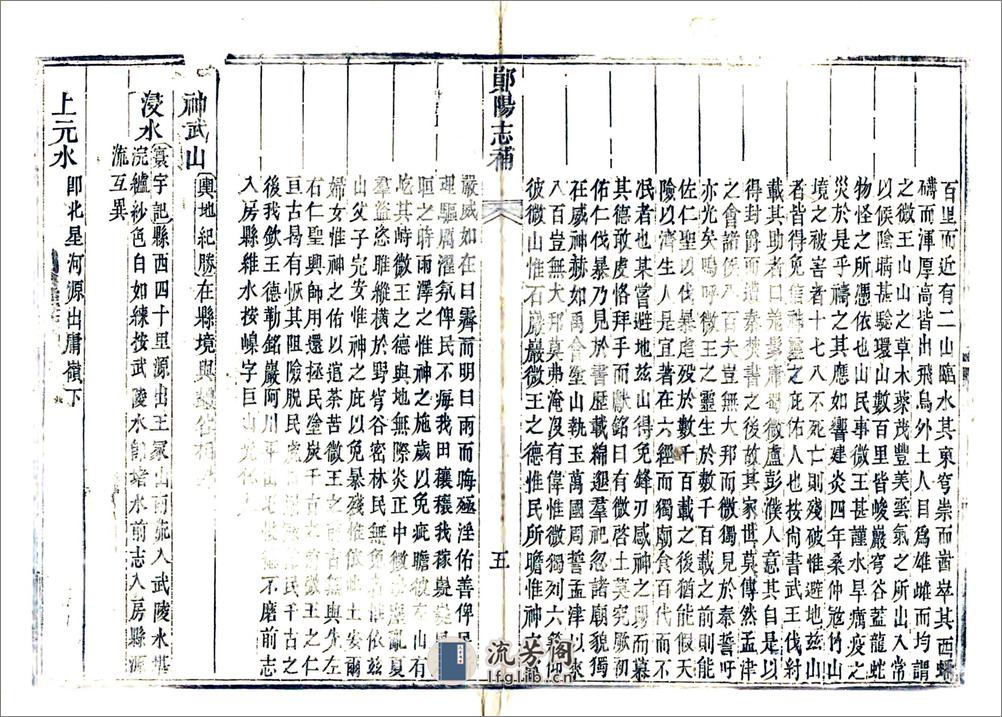 百里而近有二山臨水其東穹崇而崷崒其西蟠
礴而渾厚高皆出飛鳥外土人目爲雄雌而均謂
之微王山山之草木藂茂豐美雲氣之所出入常
以候陰晴甚驗環山數百里皆峻巖穹谷蓋龍蛇
物怪之所憑依也山民事微王甚謹水旱癘疫之
災於是乎禱之其應如響建炎四年桑仲冦竹山
境之被害者十七八不死亡則殘破惟避地茲山
者皆得免信神靈之庇佑人也按尙書武王伐紂
載其助者曰羗髳庸蜀微盧彭濮人意其自是以
得封爵而遭秦焚之後故其家世莫傳然孟津
之會諸侯八百夫豈無大邦而微獨見於秦誓吁
亦光矣嗚呼微王之靈生於數千百載之前則能
佐仁聖以伐暴虐歿於數千百載之後猶能假天
險以濟生人是宜著在六經而獨廟食百代而不
泯者也某嘗避地茲山得免鋒刃感神之賜而慕
其德敢虔恪拜手而獻銘曰有微啓土莫究厥初
佑仁伐暴乃見於書歷載綿邈羣祀忽諸廟貌獨
在威神赫如禹會塗山執玉萬國周誓孟津以來
八百豈無大邦莫弗淹沒有惟微獨列六籍
彼微山惟石巖巖微王之德惟民所瞻惟神之
鄖陽志補
五
嚴威如在曰霽而明曰雨而晦殛淫佑善俾民
理驅厲濯氛俾民不
暄之時雨澤之惟神之施歲以免疵瞻彼有山有
屹其峙微王之德與地無際炎正中微亂夏
羣盜恣睢縱橫於野穹谷密林民無依茲
山父子完安惟神之庇以免暴殘惟依此土安爾
婦女惟神之佑以逭荼苦微王之無與先左
右仁聖興師用還拯民塗炭千古微王之仁
亘古曷有恢其阻險脫民民千古之
後我欽王德勒銘巖阿川不磨前志
入房縣維水按嵊字巨山
神武山
輿地紀勝在縣境與
浸水
寰宇記縣西四十里源出王冢山而流入武陵水堪
浣纑紗色白如練按武陵水卽堵水前志入房縣源
流互異
上元水
卽北星河源出庸嶺下
流芳阁
lfglib.cn